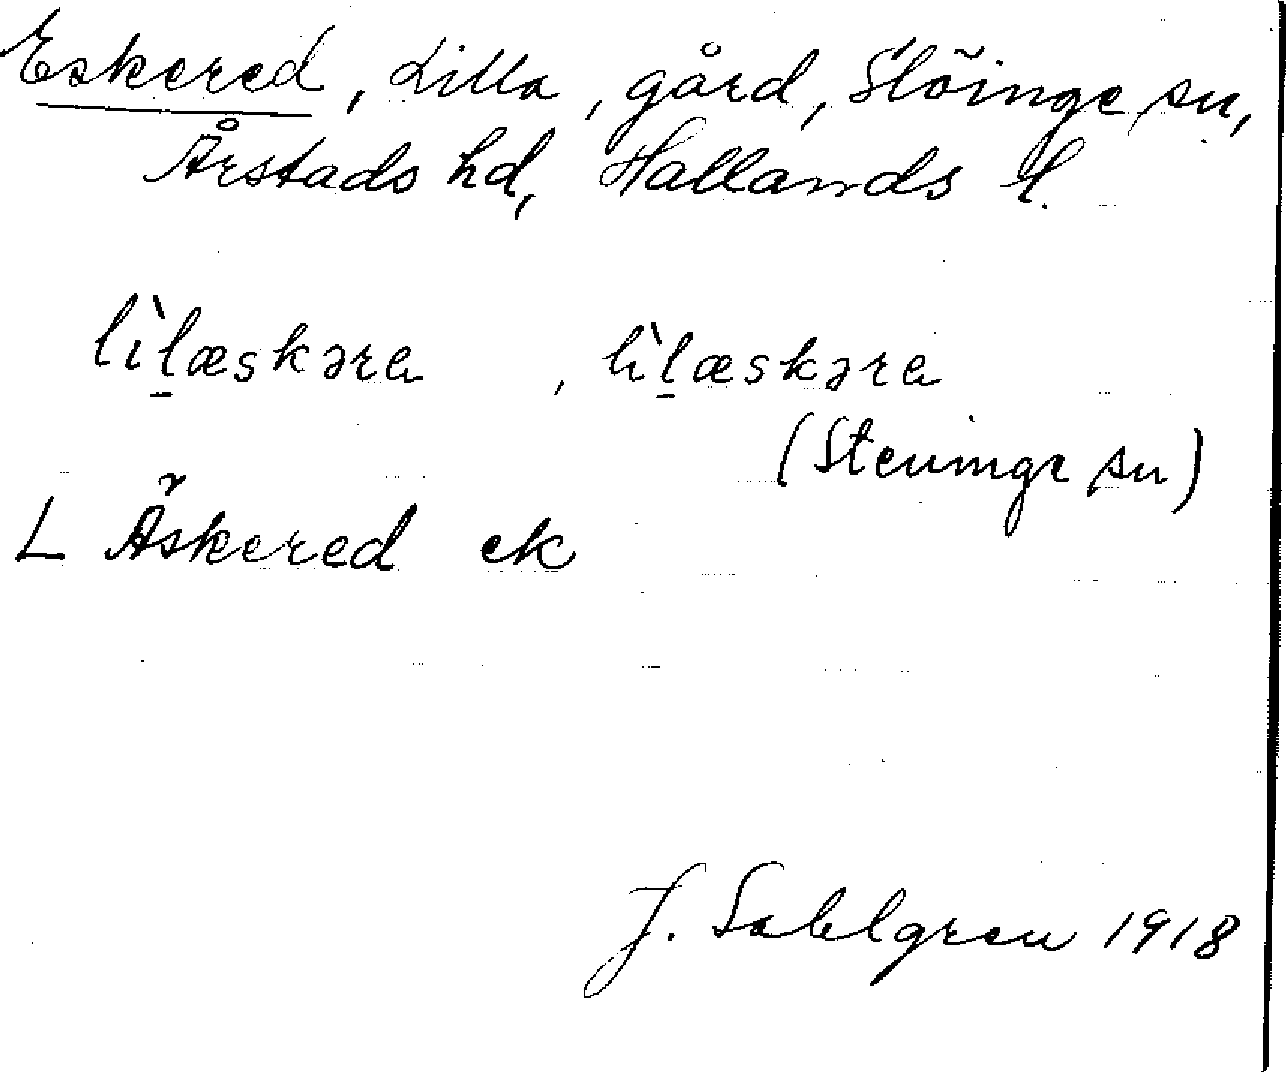 Eskered, Lilla, gård, Slöinge sn,
Årstads hd, Hallands l.
lìl̠æskəra, lìl̠æskəra
(Steninge sn)
L Äskered ek
J. Sahlgren 1918